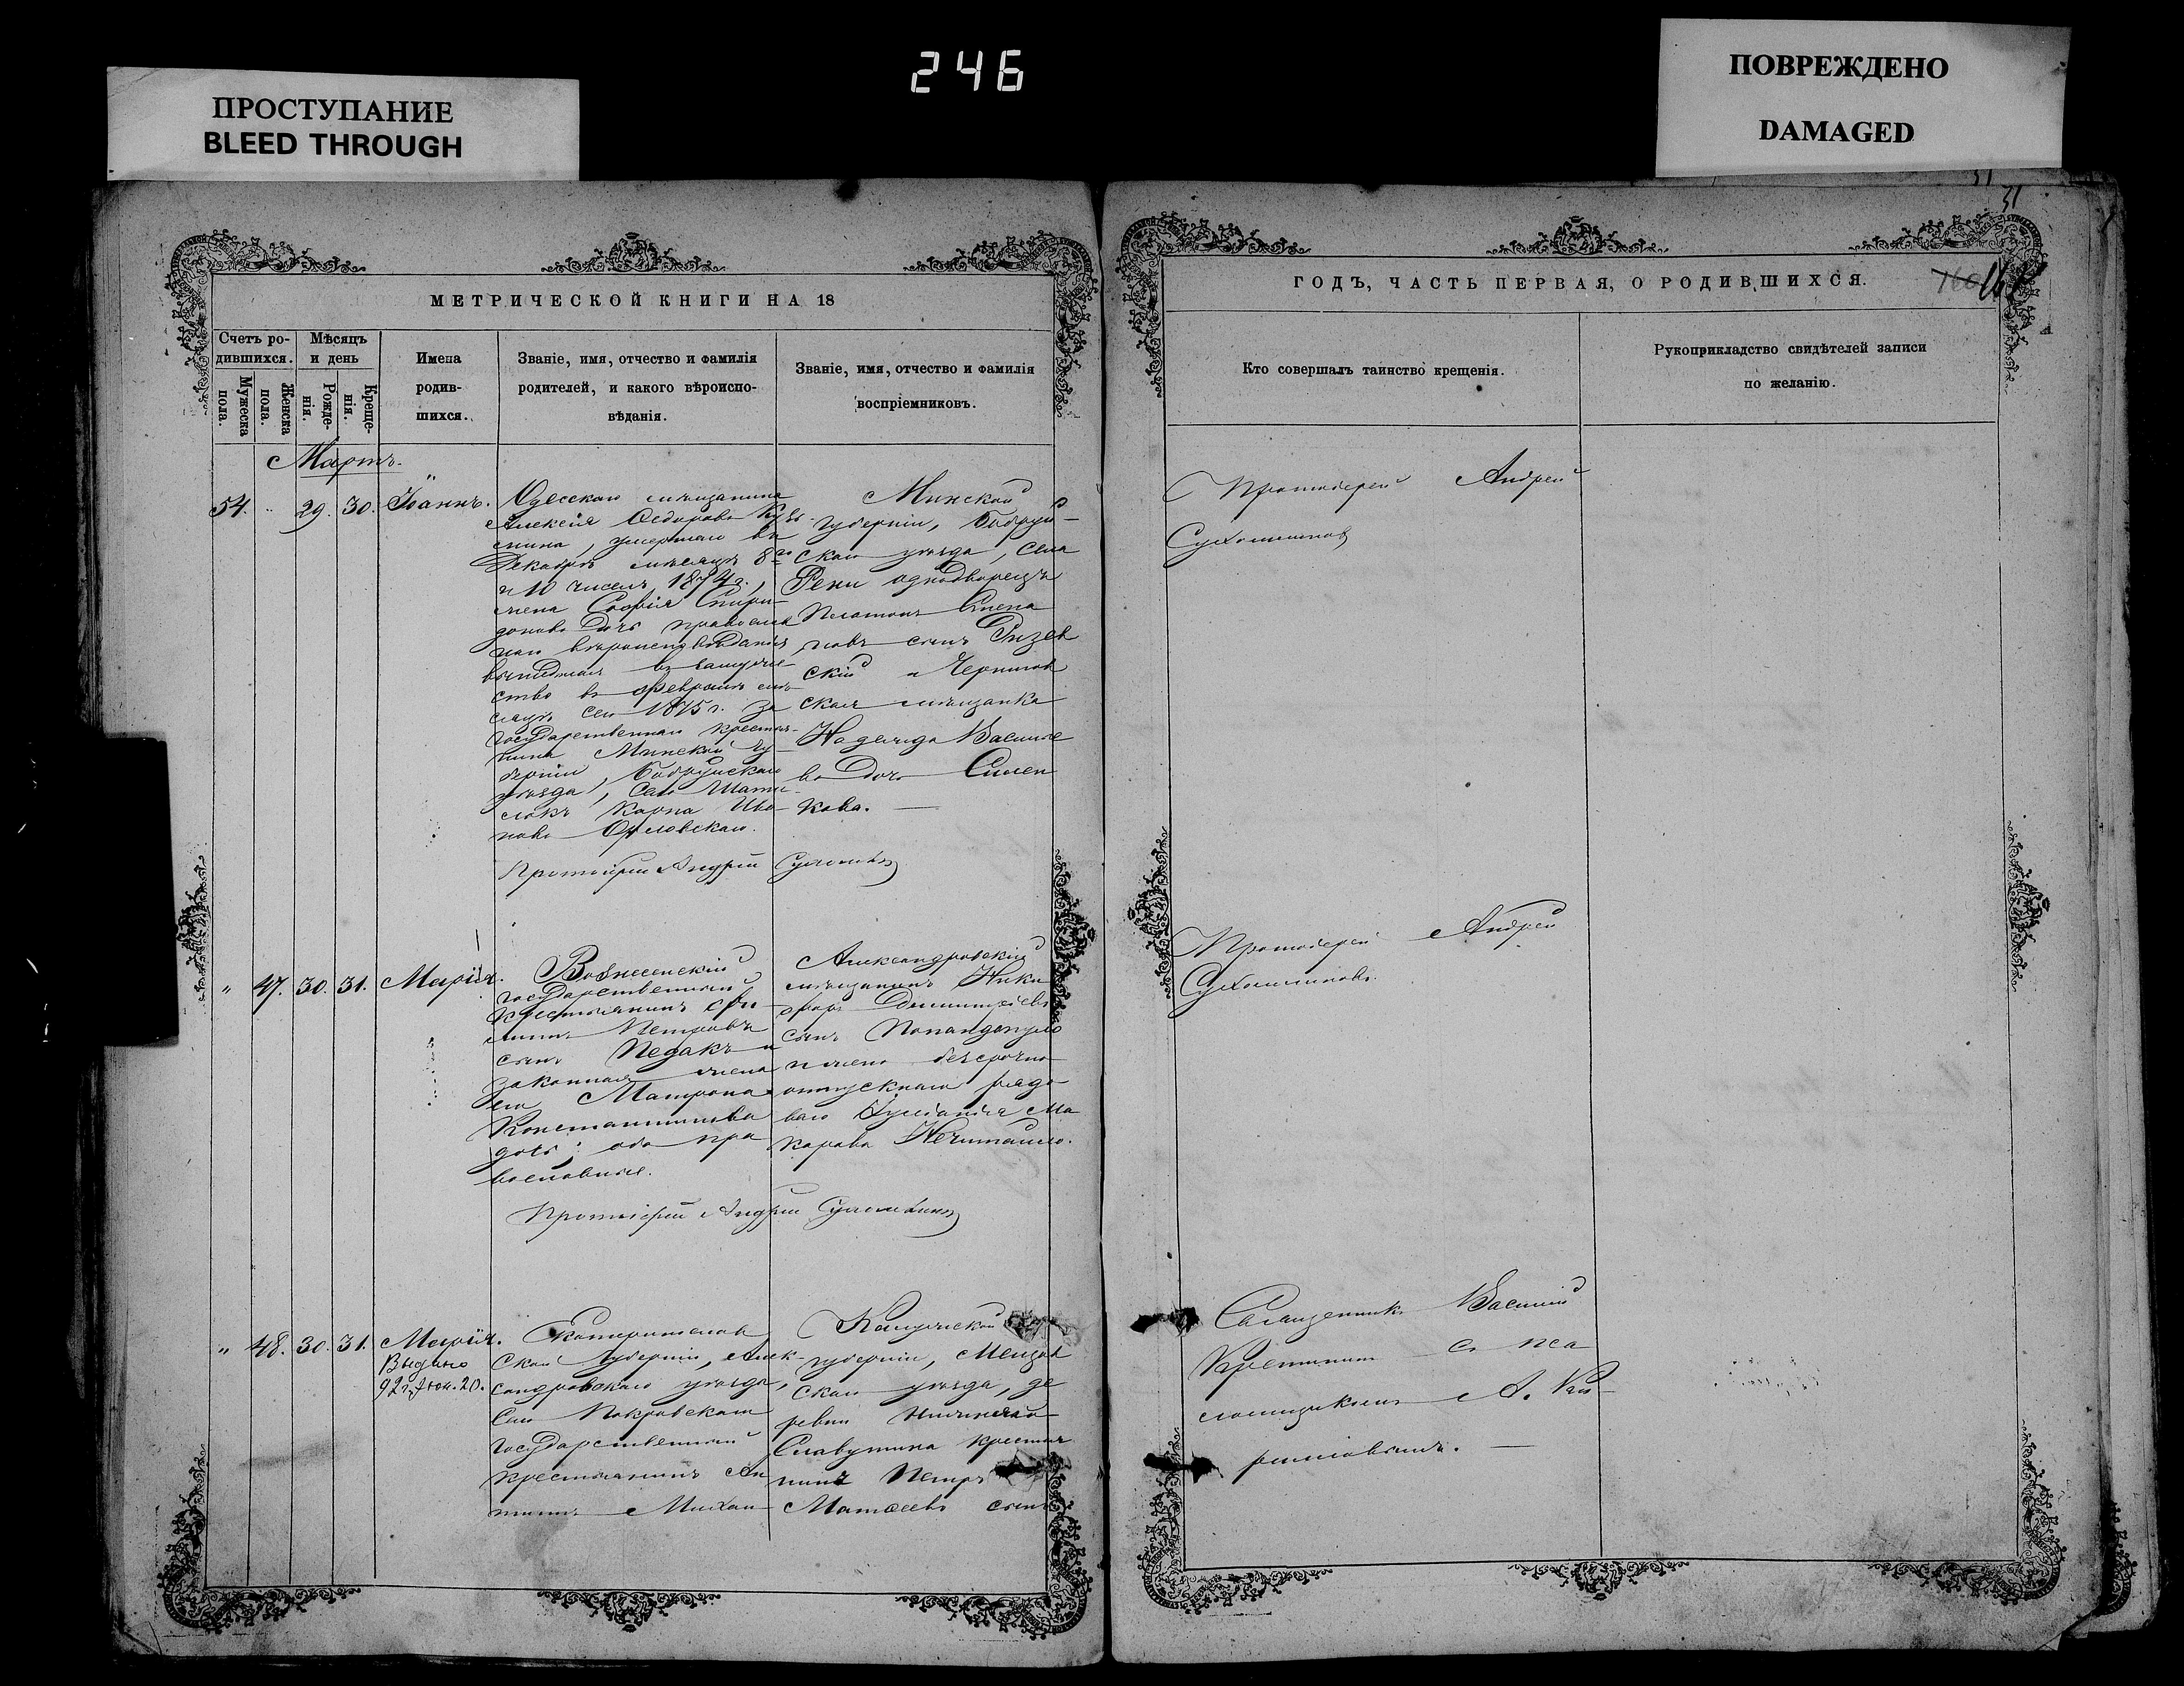 246
ПРОСТУПАНИЕ
BLEED THROUGH
ПОВРЕЖДЕНО
DAMAGED
31
31
МЕТРИЧЕСКОЙ КНИГИ НА 18
Счетъ ро-
дившихся.
Мужеска
пола.
Женска
пола.
Мѣсяцъ
и день
Рожде-
нія.
Креще-
нія.
Имена
родив-
шихся.
Званіе, имя, отчество и фамилія
родителей, и какого вѣроиспо-
вѣданія.
Званіе, имя, отчество и фамилія
воспріемниковъ.
Мартъ.
54. " 29. 30. Іоаннъ.
Одесскаго мѣщанина
Алексія Ѳедорова
умершаго въ
Декабрѣ мѣсяцѣ 8го
и 10 чиселъ 1874 г.,
жена Софія Спири-
донова дочь православ
наго вѣроисповѣданія
вышедшая въ замуже
ство въ февралѣ мѣ-
сяцѣ сего 1875 г. за
государственнаго крестья-
нина Минской гу
берніи, Бобруйскаго
уѣзда, села
Карпа Ива
нова Орловскаго.
Минской
губерніи, Бобруй-
скаго уѣзда, села
однодворецъ
Платонъ Степа
новъ сынъ
скій и Чернигов
ская мѣщанка
Надежда Василье
ва дочь Симен
кова.
Протоіерей Андрей Сухомлинов
" 47. 30. 31. Марія.
Вознесенскій
государственный
крестьянинъ Фи-
липпъ Петровъ
сынъ Педакъ и
законная жена
его Матрона
Константинова
дочь; оба пра
вославные.
Александровскій
мѣщанинъ Ники
форъ Димитріевъ
сынъ Попандопуло
и жена безсрочно
отпускнаго рядо-
ваго Іуліанія Ма
карова Нечитайло.
Протоіерей Андрей Сухомлинов
" 48. 30. 31. Марія.
Выдано
92 г. Іюн. 20.
Екатеринослав
ской губерніи, Алек-
сандровскаго уѣзда,
села Покровскаго
государственный
крестьянинъ Ан
типъ Михаи-
Калужской
губерніи, Мещов
скаго уѣзда, де
ревни
Славутина крестья
нинъ Петръ
Матѳеевъ сынъ
ГОДЪ, ЧАСТЬ ПЕРВАЯ, О РОДИВШИХСЯ.
Кто совершалъ таинство крещенія.
Рукоприкладство свидѣтелей записи
по желанію.
Протоіерей Андрей
Сухомлиновъ
Протоіерей Андрей
Сухомлиновъ.
Священникъ Василій
съ пса
ломщикомъ А. Ки-
рилловымъ.